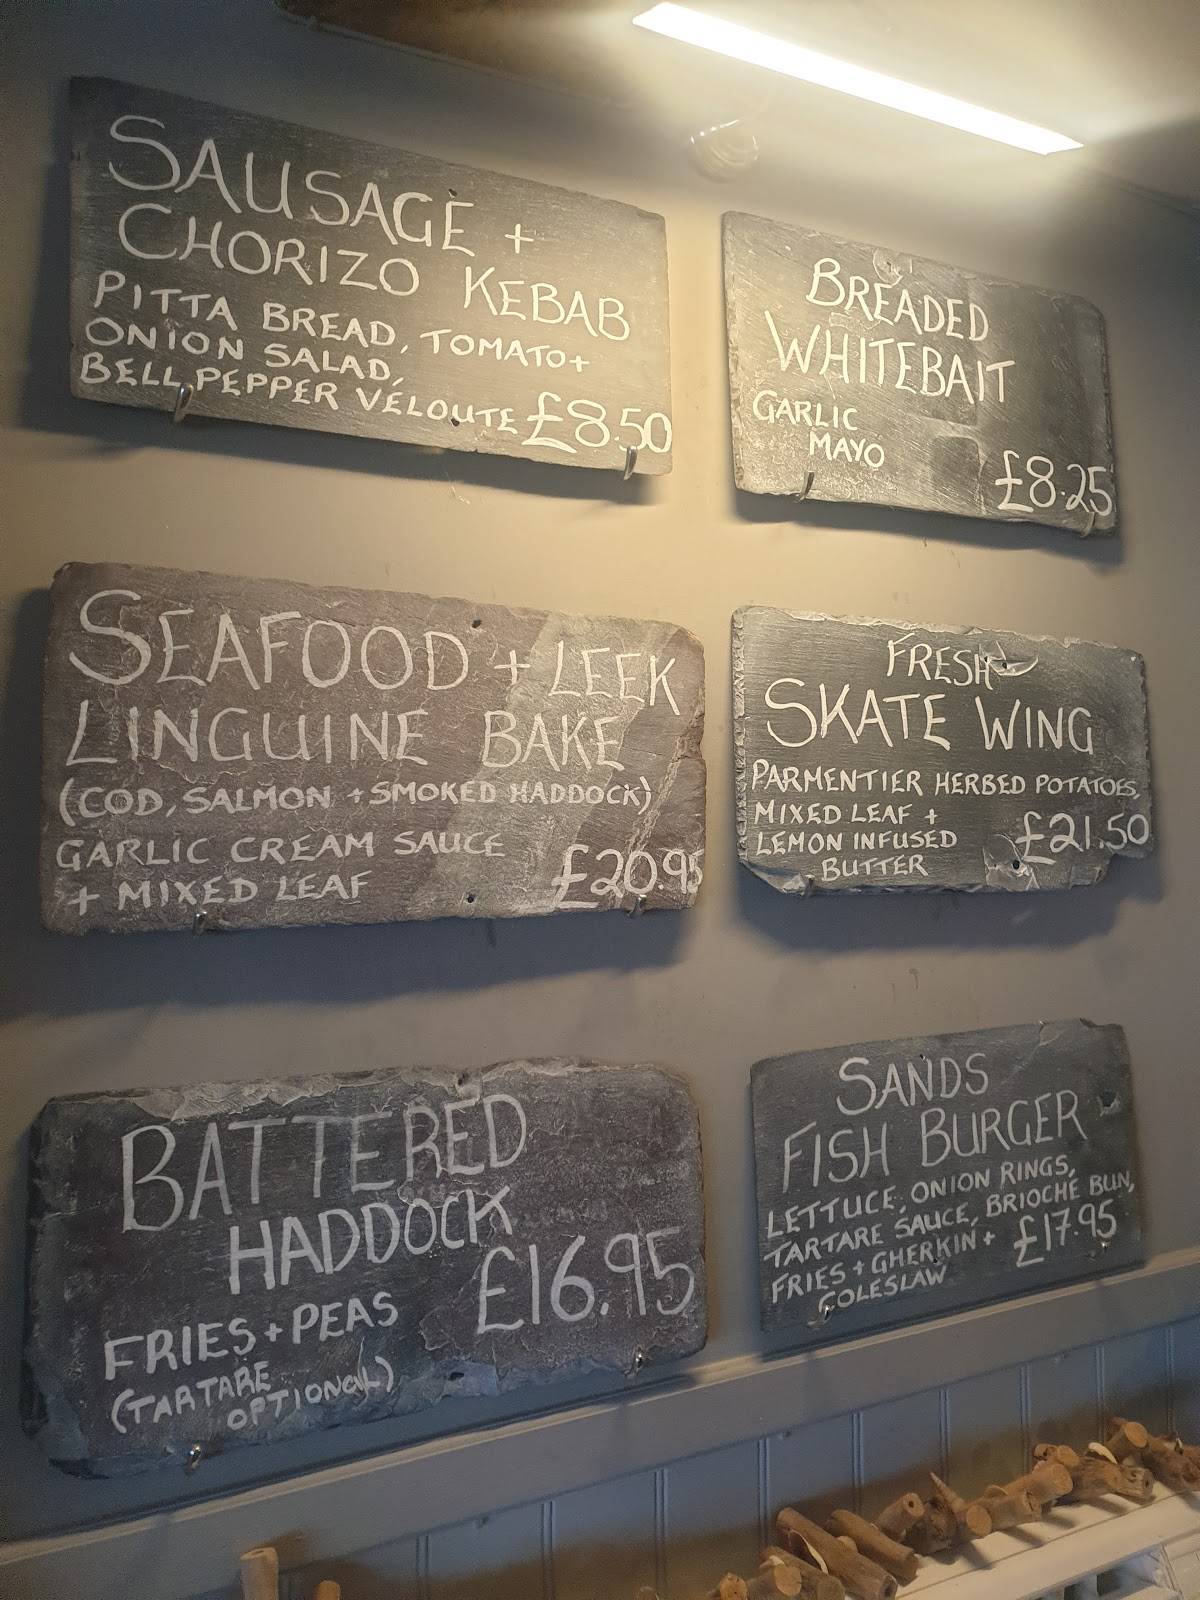 SAUSAGE +
CHORIZO KEBAB
PITTA BREAD, TOMATO +
ONION SALAD,
BELL PEPPER VÉLOUTE £8.50
BREADED
WHITEBAIT
GARLIC
MAYO
£8.25
SEAFOOD + LEEK
LINGUINE BAKE
(COD, SALMON + SMOKED HADDOCK)
GARLIC CREAM SAUCE
+ MIXED LEAF £20.95
FRESH
SKATE WING
PARMENTIER HERBED POTATOES,
MIXED LEAF +
LEMON INFUSED £21.50
BUTTER
BATTERED
HADDOCK
£16.95
FRIES + PEAS
(TARTARE
OPTIONAL)
SANDS
FISH BURGER
LETTUCE, ONION RINGS,
TARTARE SAUCE, BRIOCHE BUN,
FRIES + GHERKIN + £17.95
COLESLAW